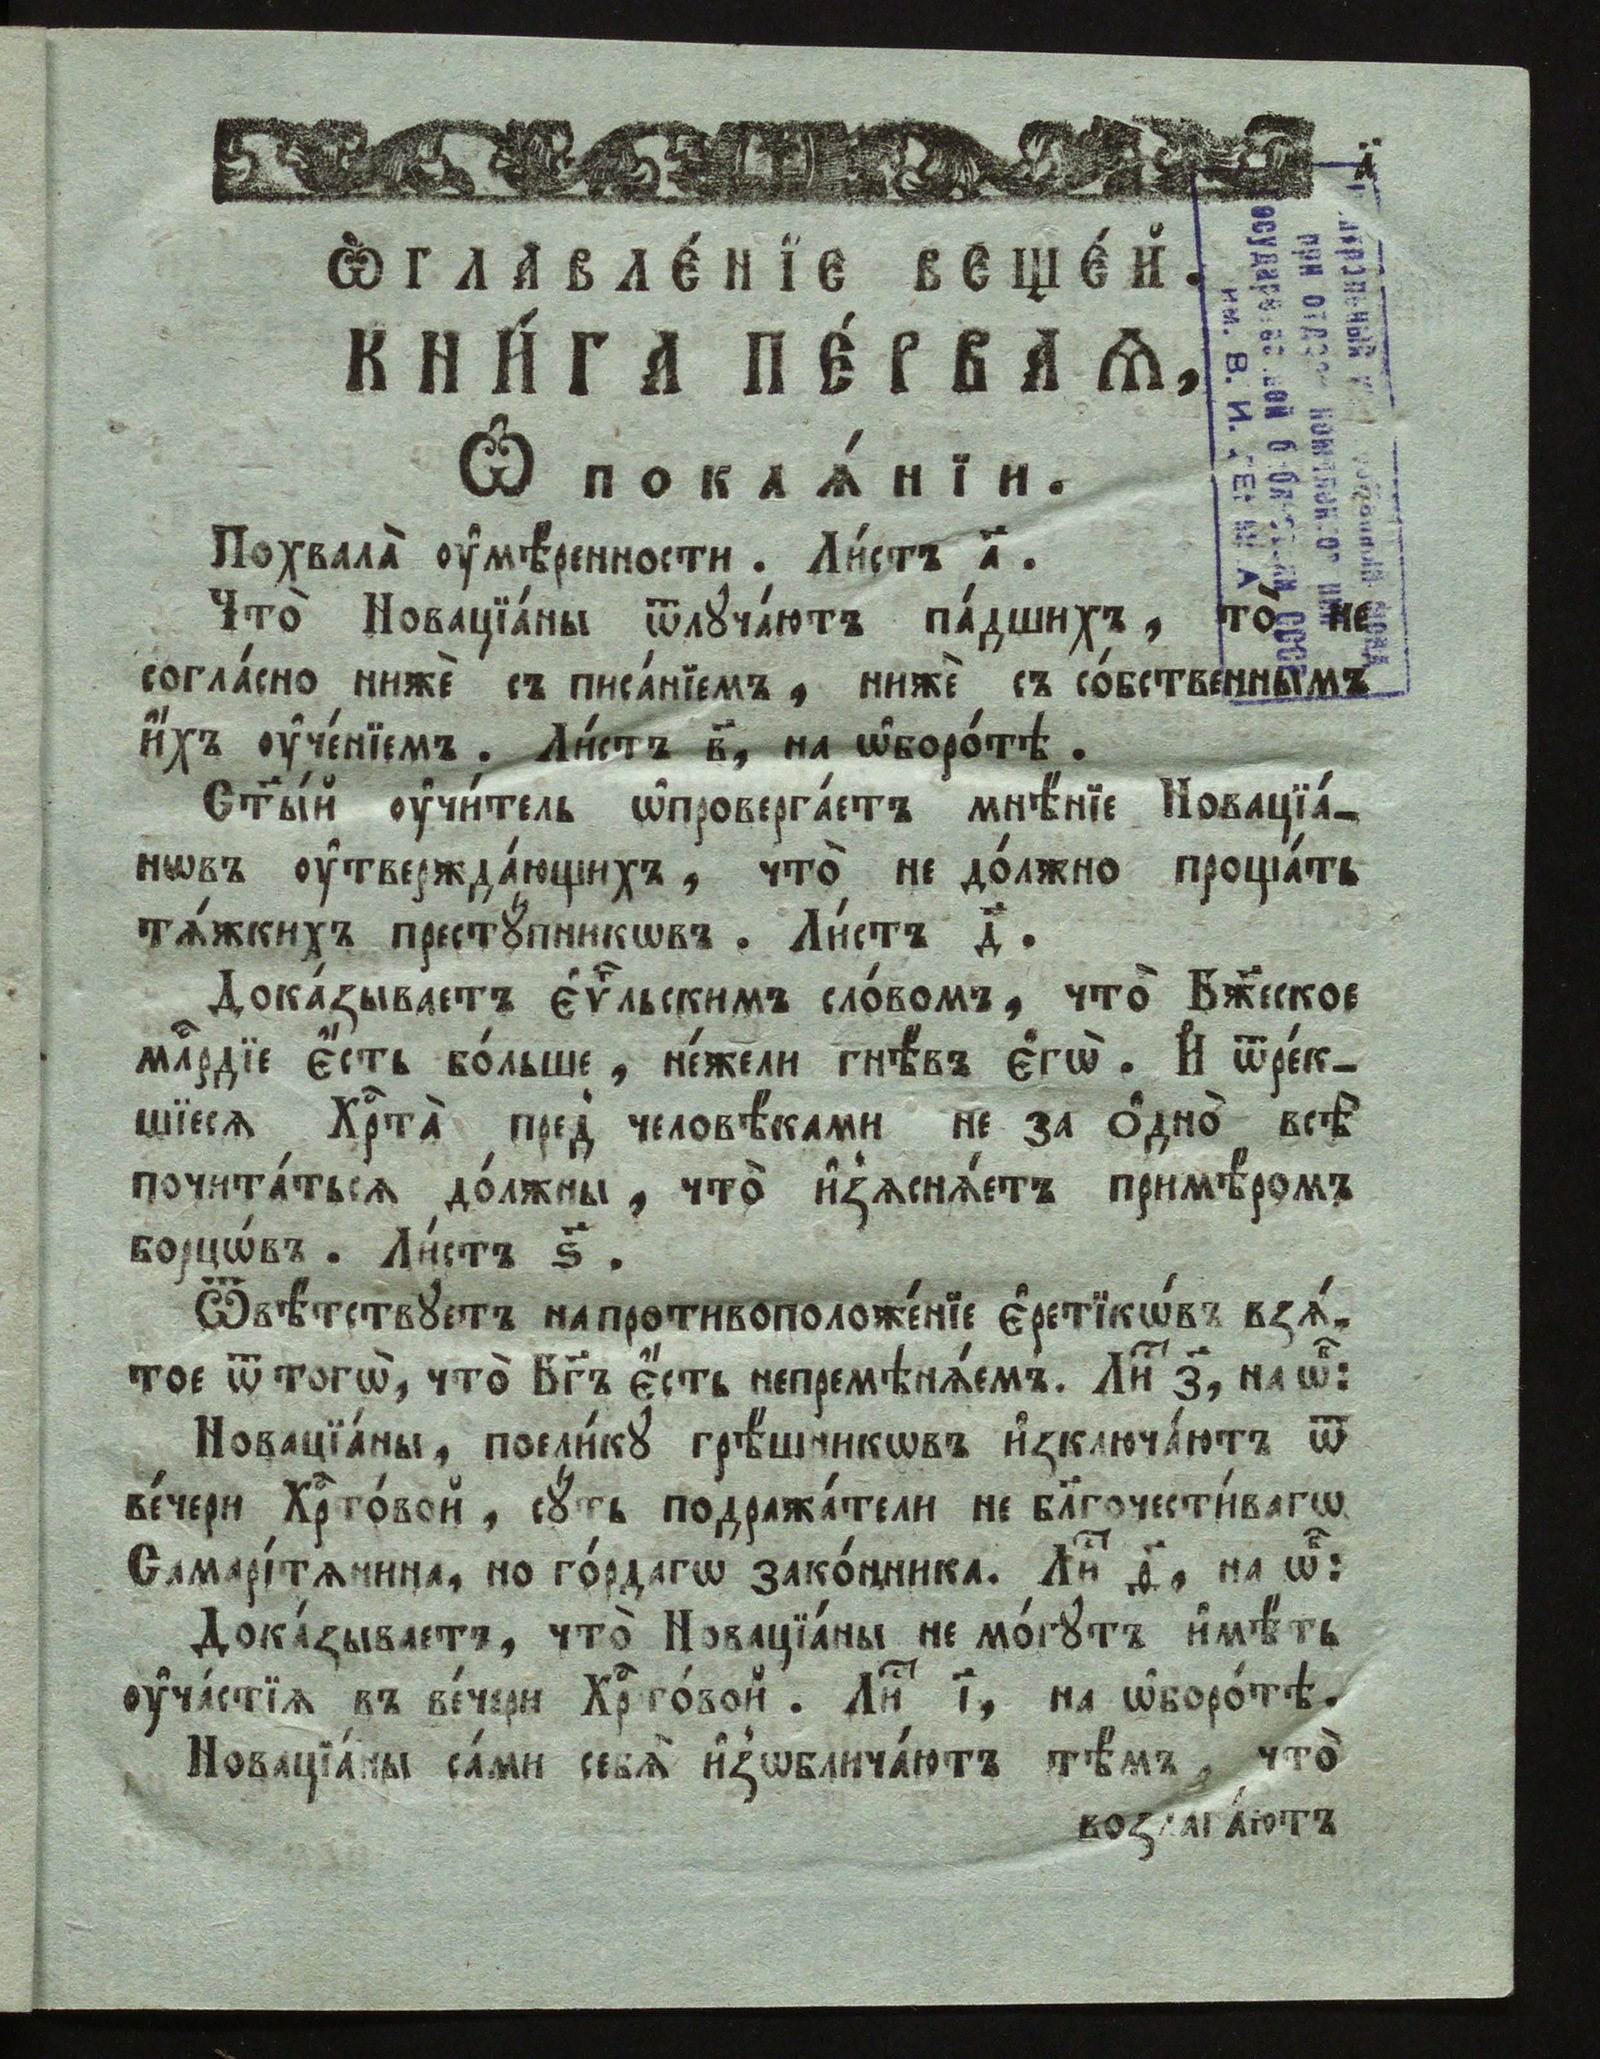 а҃
Ѽглавле́нїе веще́й.
КНИ́ГА ПЕ́РВАѦ,
Ѽ покаѧ́нїи.
Похвала̀ ᲂу҆мѣ́ренности. Ли́стъ а҃.
Что̀ Новацїа́ны ѿлꙋча́ютъ па́дшихъ, то̀ не
согла́сно нижѐ съ писа́нїемъ, нижѐ съ со́бственнымъ
и҆́хъ ᲂу҆че́нїемъ. Ли́стъ в҃, на ѡ҆боро́тѣ.
Ст҃ы́й ᲂу҆чи́тель ѡ҆проверга́етъ мнѣ́нїе Новацїа́-
нѡвъ ᲂу҆твержда́ющихъ, что̀ не до́лжно проща́ть
тѧ́жкихъ престꙋ́пникѡвъ. Ли́стъ д҃.
Дока́зываетъ є҆ѵⷢ҇льскимъ сло́вомъ, что̀ Бж҃еское
млⷭ҇рдїе є҆́сть бо́льше, не́жели гнѣ́въ є҆гѡ̀. И҆ ѿре́к-
шїесѧ Хрⷭ҇та̀ пред̾ человѣ́ками не за ѻ҆дно̀ всѣ̀
почита́тьсѧ до́лжны, что̀ и҆з̾ѧснѧ́етъ примѣ́ромъ
борцѡ́въ. Ли́стъ ѕ҃.
Ѿвѣ́тствꙋетъ на противоположе́нїе є҆ретїкѡ́въ взѧ́-
тое ѿ тогѡ̀, что̀ Бг҃ъ є҆́сть непремѣнѧ́емъ. Лиⷭ҇ з҃, на ѡ҆ⷠ:
Новацїа́ны, поели́кꙋ грѣ́шникѡвъ и҆зключа́ютъ ѿ
ве́чери Хрⷭ҇то́вой, сꙋ́ть подража́тели не бл҃гочести́вагѡ
Самарі́тѧнина, но го́рдагѡ зако́нника. Лиⷭ҇ ѳ҃, на ѡ҆ⷠ:
Дока́зываетъ, что̀ Новацїа́ны не мо́гꙋтъ и҆мѣ́ть
ᲂу҆ча́стїѧ въ ве́чери Хрⷭ҇то́вой. Лиⷭ҇ і҃, на ѡ҆боро́тѣ.
Новацїа́ны са́ми себѧ̀ и҆з̾ѡблича́ютъ тѣ́мъ, что̀
возлага́ютъ
при отделе
Государственной библиотеки СССР
им. В. И. ЛЕНИНА